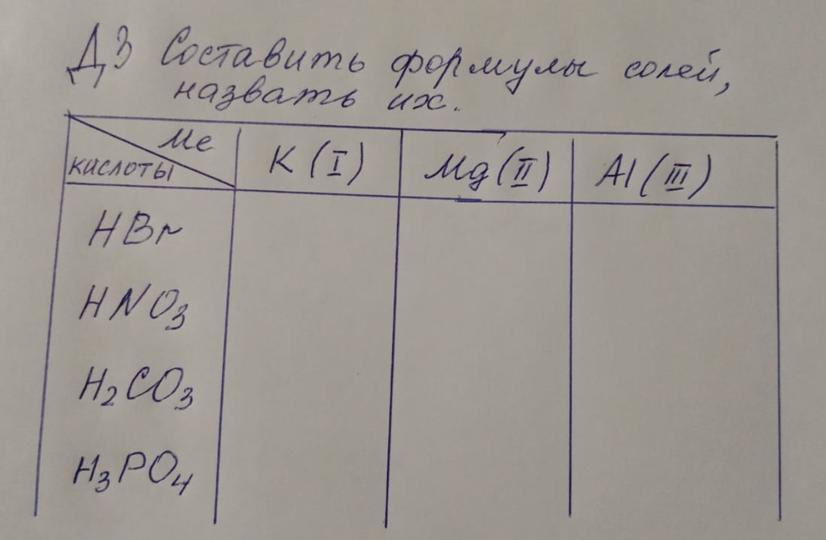 ДЗ Составить формулы солей,
назвать их.
Ме
кислоты
K (I)
Mg (II)
Al (III)
HBr
HNO₃
H₂CO₃
H₃PO₄